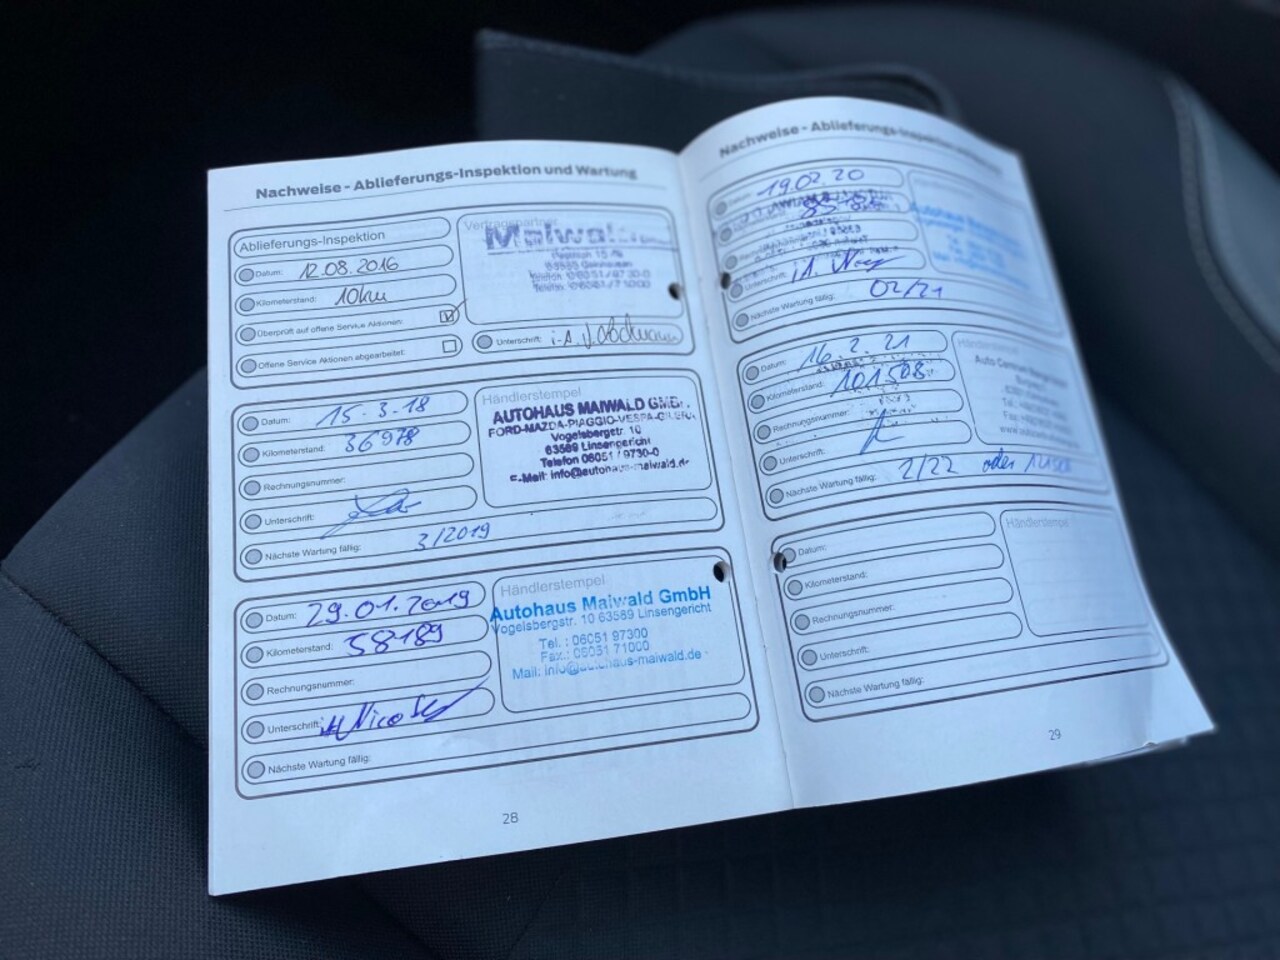 Nachweise - Ablieferungs-Inspektion und Wartung
Ablieferungs-Inspektion
Datum: 12.08.2016
Kilometerstand: 10km
Überprüft auf offene Service Aktionen:
Offene Service Aktionen abgearbeitet:
Vertragspartner
Maiwald
Unterschrift: i.A.
Datum: 15.3.18
Kilometerstand: 36978
Rechnungsnummer:
Unterschrift:
Nächste Wartung fällig: 3/2019
Händlerstempel
AUTOHAUS MAIWALD GMBH
FORD-MAZDA-PIAGGIO-VESPA-GILERA
Vogelsbergstr. 10
63589 Linsengericht
Telefon 06051 / 9730-0
E-Mail: info@autohaus-maiwald.de
Datum: 29.01.2019
Kilometerstand: 58189
Rechnungsnummer:
Unterschrift:
Nächste Wartung fällig:
Händlerstempel
Autohaus Maiwald GmbH
Vogelsbergstr. 10 63589 Linsengericht
Tel.: 06051 97300
Fax.: 06051 71000
Mail: info@autohaus-maiwald.de
28
Nachweise - Ablieferungs-Inspektion
Datum: 19.02.20
Unterschrift: i.A.
Nächste Wartung fällig: 02/21
Autohaus
Datum: 16.2.21
Kilometerstand: 101508
Rechnungsnummer:
Unterschrift:
Nächste Wartung fällig: 2/22 oder
Händlerstempel
Auto Centrum
Datum:
Kilometerstand:
Rechnungsnummer:
Unterschrift:
Nächste Wartung fällig:
Händlerstempel
29